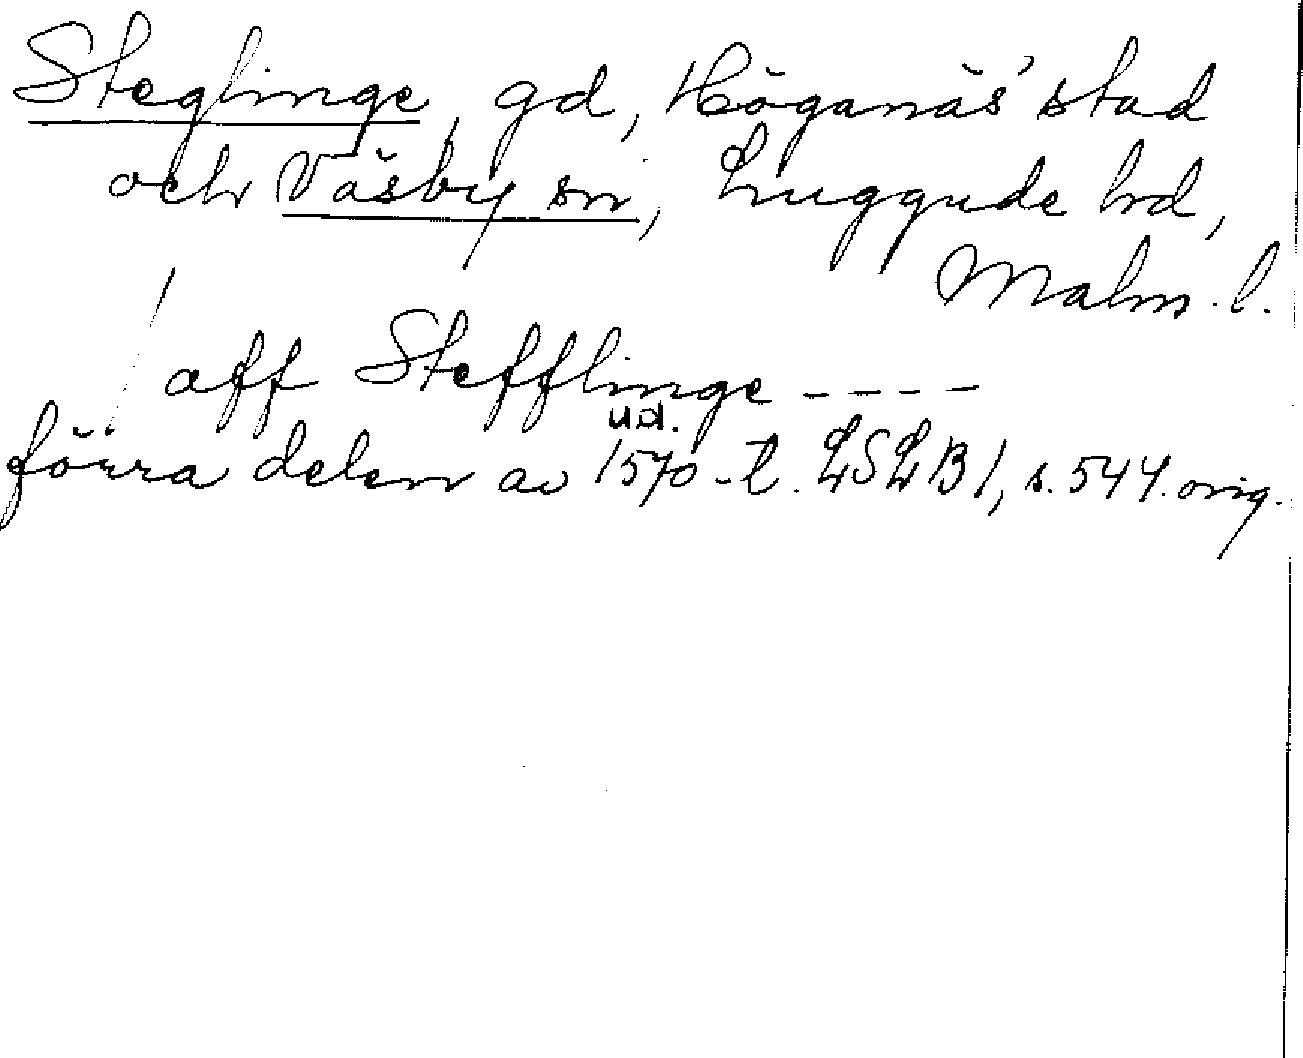 Steglinge, gd, Höganäs stad
och Väsby sn, Luggude hd,
Malm. l.
aff Stefflinge - - - -
ud.
förra delen av 1570-t. LSLB 1, s. 544. orig.